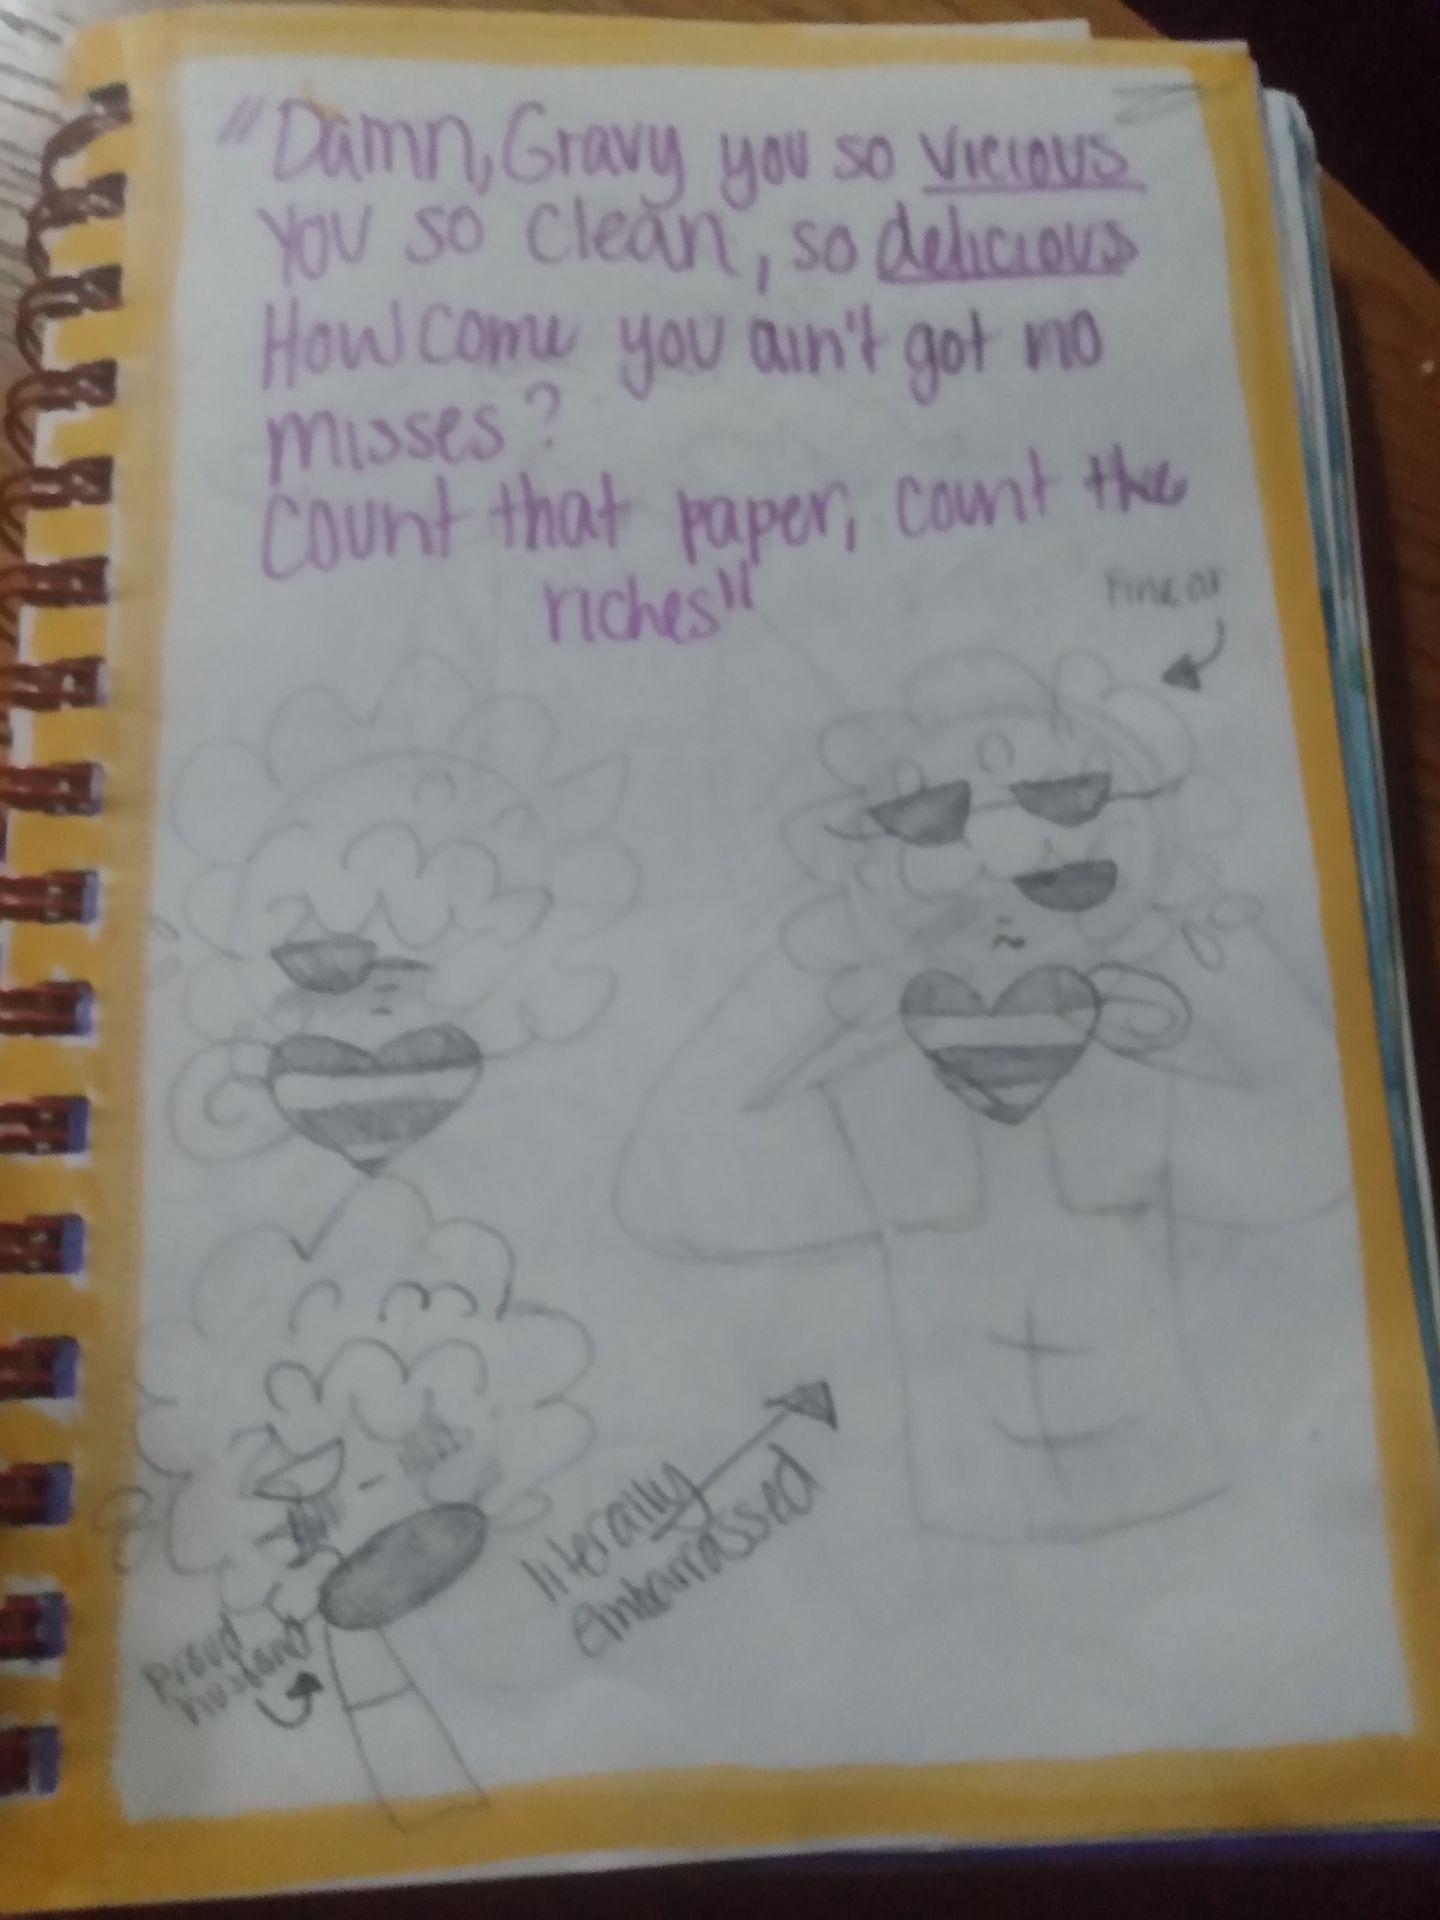 "Damn, Gravy you so vicious
You so clean, so delicious
How come you ain't got no
misses?
Count that paper, count the
riches"
Fine
literally
embarrassed
Proud
husband